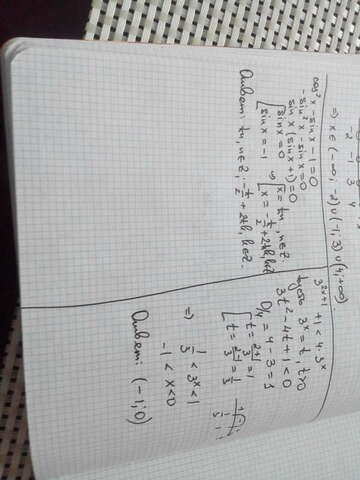 ⇒ x ∈ (-∞, -2) ∪ (-1; 3) ∪ (4; +∞).
cos²x - sin x - 1 = 0
-sin²x - sin x = 0
sin x (sin x + 1) = 0
[ sin x = 0 ⇒ [ x = πn, n∈Z,
[ sin x = -1 [ x = -π/2 + 2πk, k∈Z.
Ответ: πn, n∈Z; -π/2 + 2πk, k∈Z.
3^(2x+1) + 1 < 4·3^x
Пусть 3^x = t, t>0
3t² - 4t + 1 < 0
D/4 = 4 - 3 = 1
[ t = (2+1)/3 = 1
[ t = (2-1)/3 = 1/3
⇒ 1/3 < 3^x < 1
-1 < x < 0
Ответ: (-1; 0)